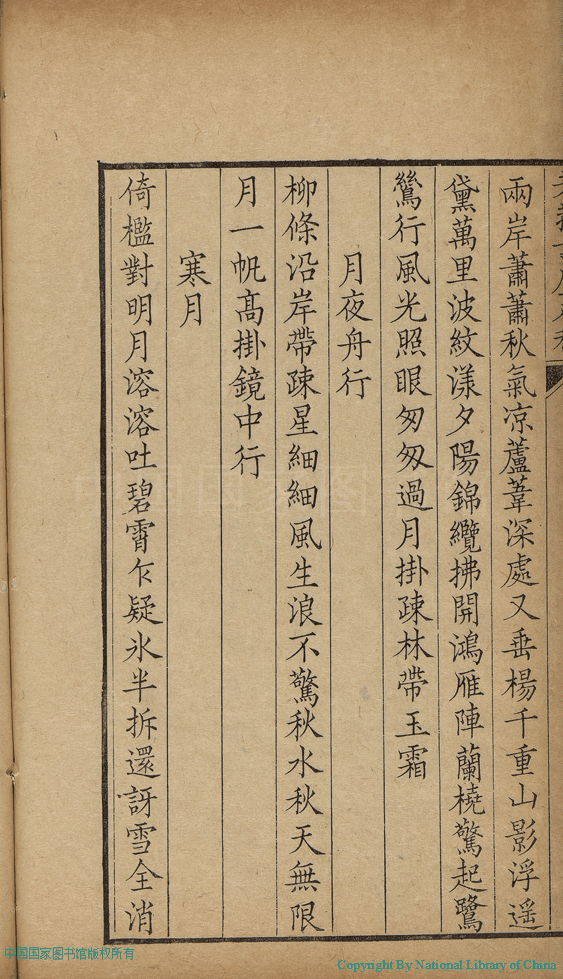 兩岸蕭蕭秋氣凉蘆葦深處又垂楊千重山影浮遥
黛萬里波紋漾夕陽錦纜拂開鴻雁陣蘭橈驚起鷺
鷥行風光照眼匆匆過月掛疎林帶玉霜
月夜舟行
柳條沿岸帶疎星細細風生浪不驚秋水秋天無限
月一帆高掛鏡中行
寒月
倚檻對明月溶溶吐碧霄乍疑氷半拆還訝雪全消
中国国家图书馆版权所有
Copyright By National Library of China